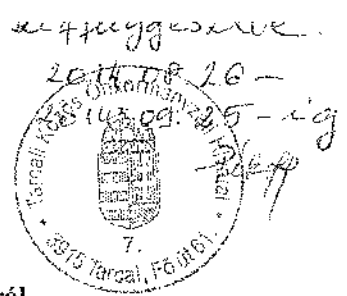 kifüggesztve.
2014.08.26 –
2014.09.25-ig
Tarcali Közös Önkormányzati Hivatal
7.
* 3915 Tarcal, Fő út 61. *
ról